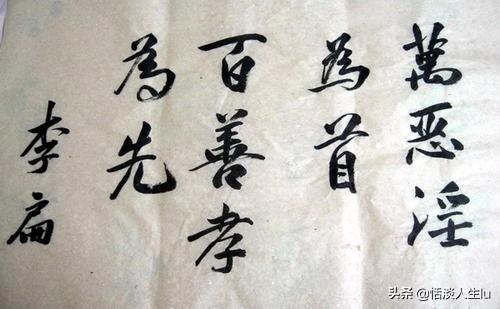 萬惡淫
為首
百善孝
為先
李扁
头条 @恬淡人生lu